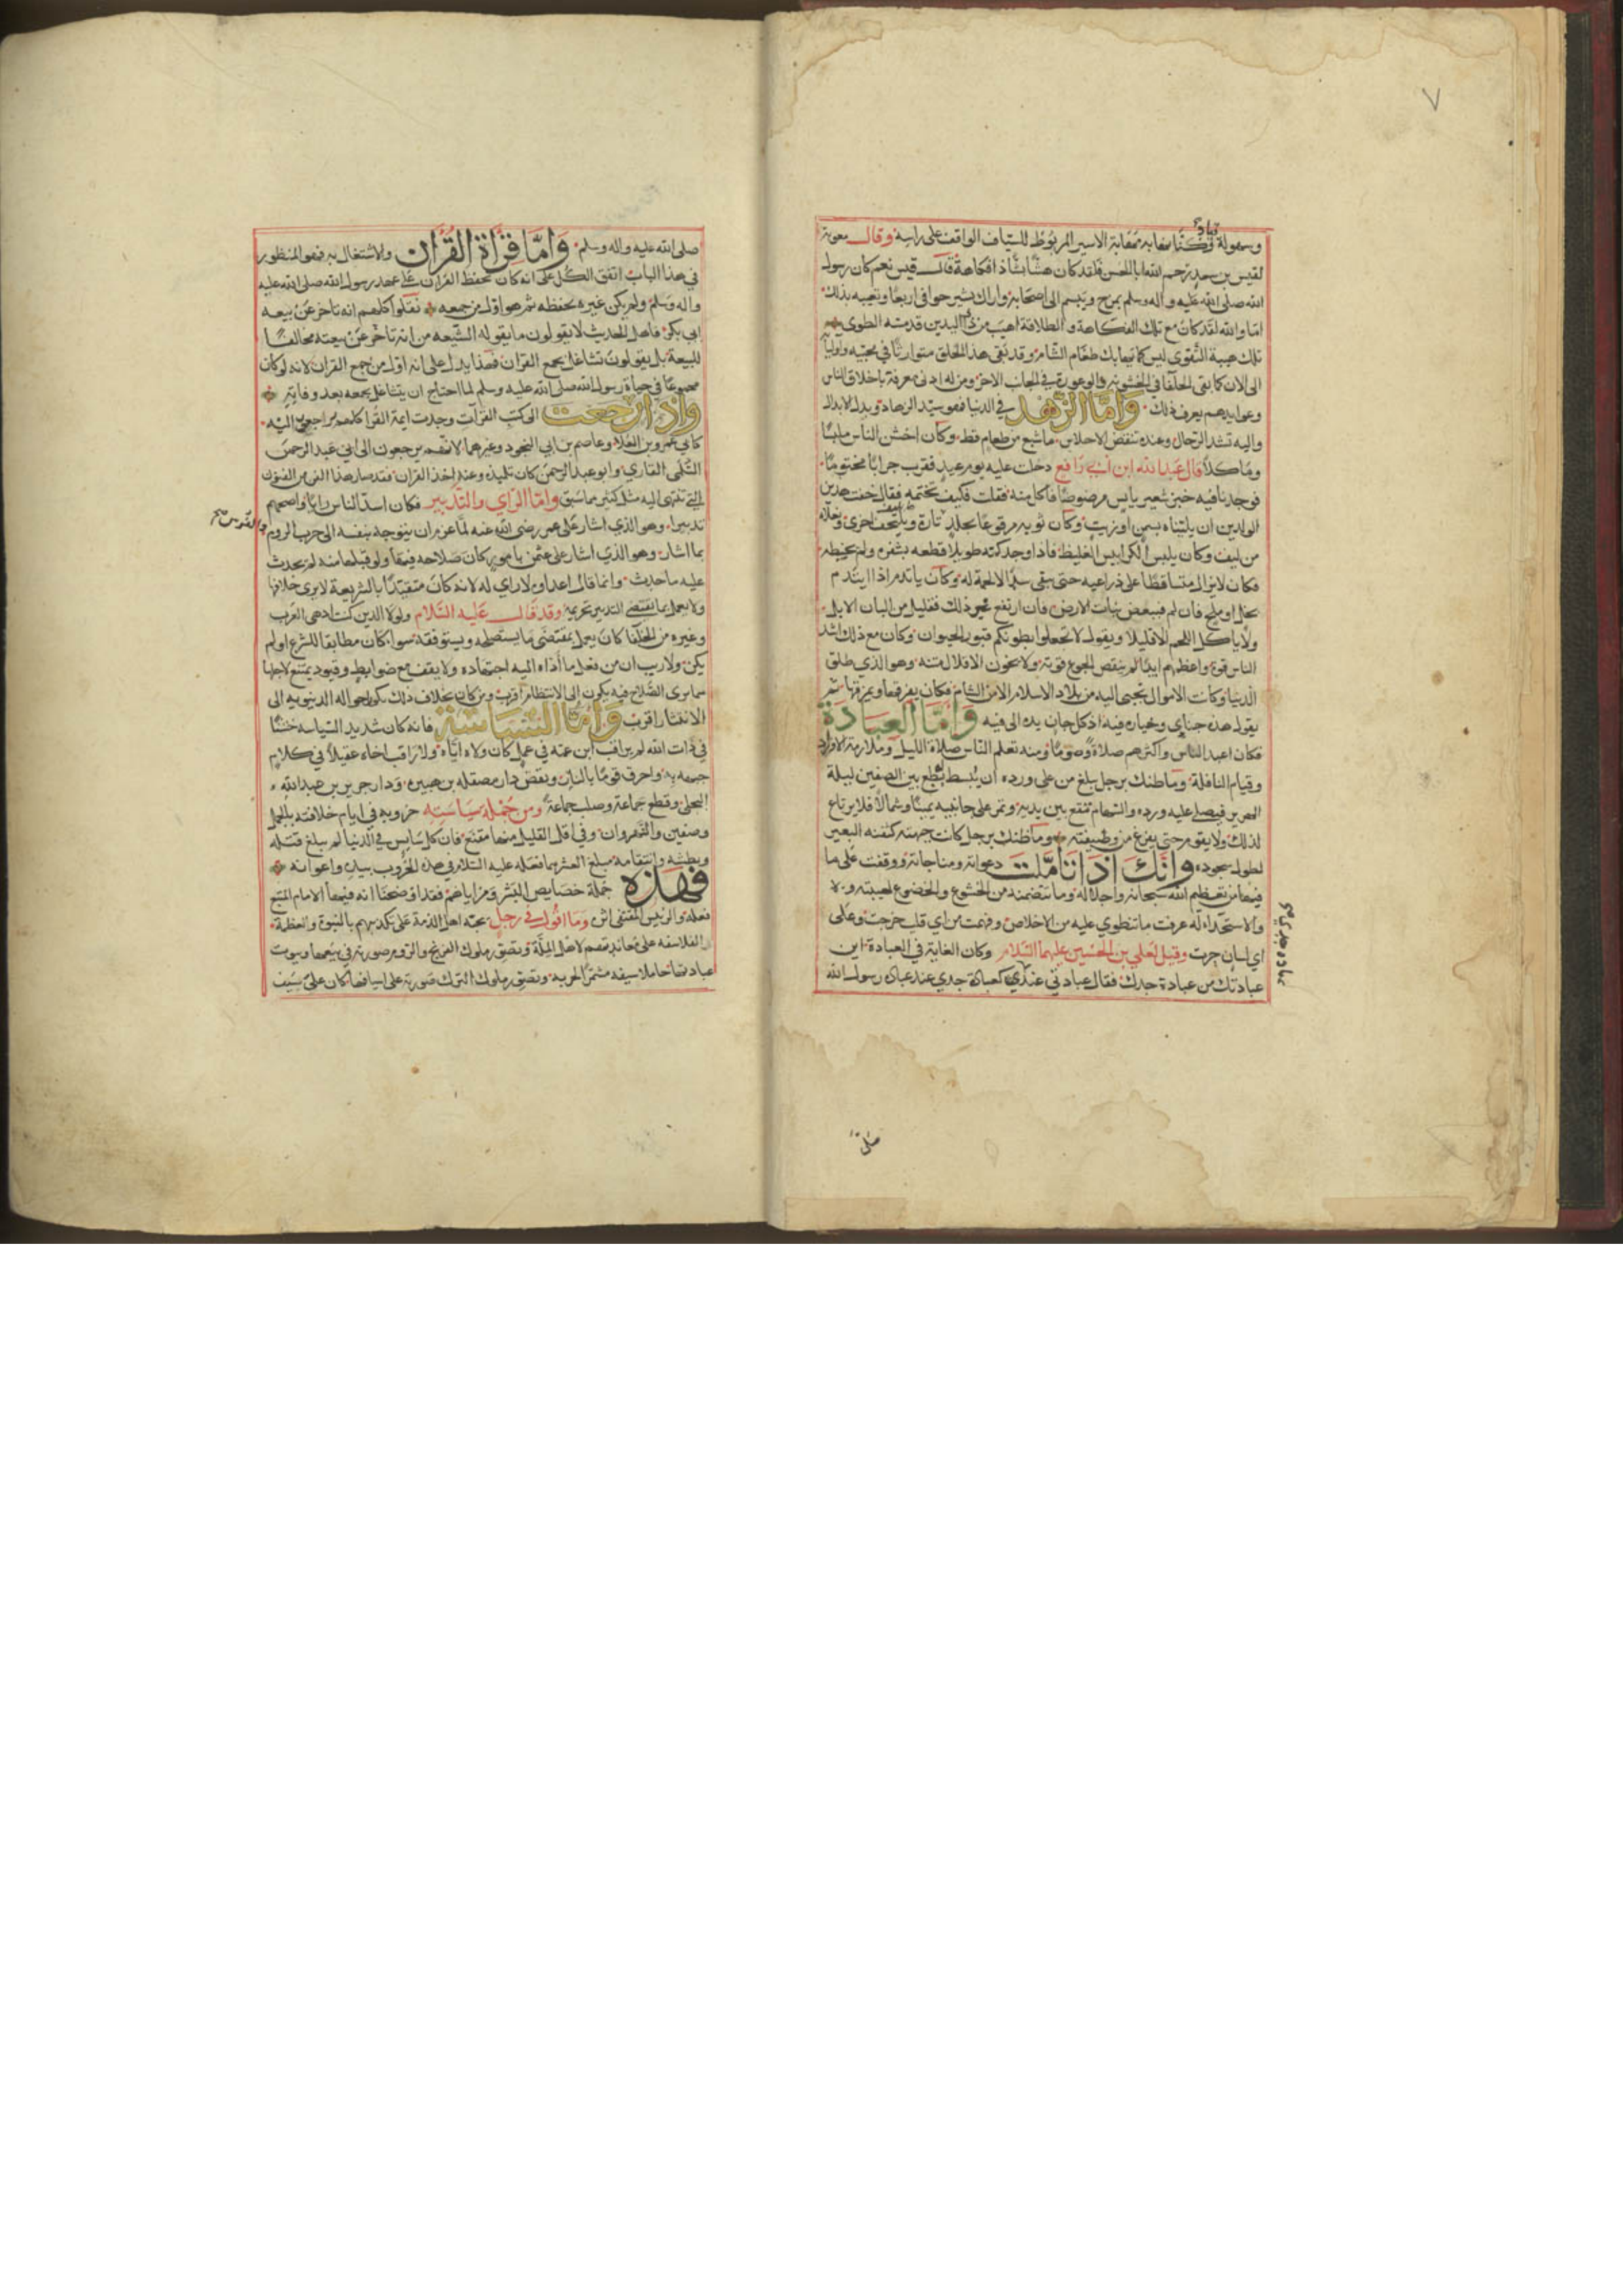 ٧
وسهولة قياد وكنا نهابه مهابة الاسير المربوط للسياف الواقف على راسه وقال معوية
لقيس بن سعد رحم الله ابا الحسن فلقد كان هشا بشا ذا فكاهة قال قيس نعم كان رسول
الله صلى الله عليه واله وسلم يمزح ويبسم الى اصحابه واراك تسر حسوا في ارتغا وتعيبه بذلك
اما والله لقد كان مع تلك الفكاهة والطلاقة اهيب من ذي لبدتين قد مسه الطوى
تلك هيبة التقوى ليس كما يهابك طغام الشام وقد بقى هذا الخلق متوارثا في محبيه واوليائه
الى الان كما بقى الجفا في الخشونة والوعورة في الجانب الاخر ومن له ادنى معرفة باخلاق الناس
وعوايدهم يعرف ذلك واما الزهد في الدنيا فهو سيد الزهاد وبدل الابدال
واليه تشد الرحال وعنده تنفض الاحلاس ما شبع من طعام قط وكان اخشن الناس ملبسا
وماكلا قال عبد الله ابن ابي رافع دخلت عليه يوم عيد فقرب جرابا مختوما
فوجدنا فيه خبز شعير يابس مرضوضا فاكل منه فقلت فكيف تختمه فقال خفت هذين
الولدين ان يلتتاه بسمن او زيت وكان ثوبه مرقوعا بجلد تارة وبليف اخرى ونعلاه
من ليف وكان يلبس الكرابيس الغليظ فاذا وجد كمه طويلا قطعه بشفرة ولم يخيطه
فكان لا يزال متساقطا على ذراعيه حتى يبقى سدا لا لحمة له وكان ياتدم اذا ايتدم
بخل او ملح فان لم فببعض نبات الارض فان ارتفع عن ذلك فقليل من البان الابل
ولا ياكل اللحم الا قليلا ويقول لا تجعلوا بطونكم قبور الحيوان وكان مع ذلك اشد
الناس قوة واعظهم ايدا لم ينقص الجوع قوته ولا يخون الاقلال منته وهو الذي طلق
الدنيا وكانت الاموال تجبى اليه من بلاد الاسلام الا من الشام فكان يفرقها ويمزقها ثم
يقول هذه جناي وخياره فيه اذ كل جان يده الى فيه واما العبادة
فكان اعبد الناس واكثرهم صلاة وصوما ومنه تعلم الناس صلاة الليل وملازمة الاوراد
وقيام النافلة وما ظنك برجل بلغ من على ورده ان يبسط نطع بين الصفين ليلة
الهرير فيصلي عليه ورده والسهام تقع بين يديه وتمر على جانبيه يمينا وشمالا فلا يرتاع
لذلك ولا يقوم حتى يفرغ من وظيفته وما ظنك برجل كانت جبهته كثفنه البعير
لطول سجوده وانك اذا تاملت دعواته ومناجاته ووقفت على ما
فيها من تعظيم الله سبحانه واجلاله وما تتضمنه من الخشوع والخضوع لهيبته
والاستخذاء له عرفت ما تنطوي عليه من الاخلاص وفهمت من اي قلب خرجت وعلى
اي لسان جرت وقيل لعلي بن الحسين عليهما السلام وكان الغاية في العبادة اين
عبادتك من عبادة جدك فقال عبادتي عند عبادة جدي كعبادة جدي عند عبادة رسول الله
صلى
صلى الله عليه واله وسلم واما قراة القران والاشتغال به فهو المنظور
في هذا الباب اتفق الكل على انه كان يحفظ القران على عهد رسول الله صلى الله عليه
واله وسلم ولم يكن غيره يحفظه ثم هو اول من جمعه نقلوا كلهم انه تاخر عن بيعه
ابي بكر فاهل الحديث لا يقولون ما يقوله الشيعه من انه تاخر عن بيعته مخالفا
للبيعة بل يقولون تشاغل بجمع القران فهذا يدل على انه اول من جمع القران لانه لو كان
مجموعا في حياة رسول الله صلى الله عليه وسلم لما احتاج ان يتشاغل بجمعه بعد وفاته
واذا رجعت الى كتب القرآت وجدت ايمة القرا كلهم يراجعون اليه
كابي عمرو بن العلا وعاصم بن ابي النجود وغيرهما لانهم يرجعون الى ابي عبد الرحمن
السلمى القاري وابو عبد الرحمن كان تلميذه وعنه اخذ القران فقد صار هذا الفن من الفنون
التي تنتهى اليه مثل كثير مما سبق واما الراي والتدبير فكان اسد الناس رايا واصحهم
تدبيرا وهو الذي اشار على عمر رضي الله عنه لما عزم ان يتوجه بنفسه الى حرب الروم والفرس
بما اشار وهو الذي اشار على عثمن بامور كان صلاحه فيها ولو قبلها منه لم يحدث
عليه ما حدث وانما قال اعداوه لا راي له لانه كان متقيدا بالشريعة لا يرى خلافها
ولا يعمل بما يقتضي التدبير تحريمه وقد قال عليه السلام ولولا الدين كنت ادهى العرب
وغيره من الخلفا كان يعمل بمقتضى ما يستصلحه ويستوفقه سوا كان مطابقا للشرع اولم
يكن ولا ريب ان من فعل ما اداه اليه اجتهاده ولا يقف مع ضوابط وقيود يمتنع لاجلها
مما يرى الصلاح فيه يكون الى الانتظام اقرب ومن كان بخلاف ذلك يكون احواله الدنيويه الى
الانتثار اقرب واما السياسة فانه كان شديد السياسه خشنا
في ذات الله لم يراقب ابن عمه في عمل كان ولاه اياه ولا راقب اخاه عقيلا في كلام
جبهه به واحرق قوما بالنار ونقض دار مصقله بن هبيره ودار جرير بن عبد الله
البجلي وقطع جماعة وصلب جماعة ومن جملة سياسته حروبه في ايام خلافته بالجمل
وصفين والنهروان وفي اقل القليل منها مقنع فان كل سايس في الدنيا لم يبلغ فتكه
وبطشه وانتقامه مبلغ العشر مما فعله عليه السلام في هذه الحروب بيده واعوانه
فهذه جملة خصايص البشر ومزاياهم فقد اوضحنا انه فيها الامام المتبع
فعله والرئيس المقتفى اثره وما اقول في رجل يحبه اهل الذمة على تكذيبهم بالنبوة وتعظمه
الفلاسفه على معاندتهم لاهل الملة وتصور ملوك الفرنج والروم صورته في بيعها وبيوت
عباداتها حاملا سيفه مشمرا لحربه وتصور ملوك الترك صورته على اسيافها كان على سيف